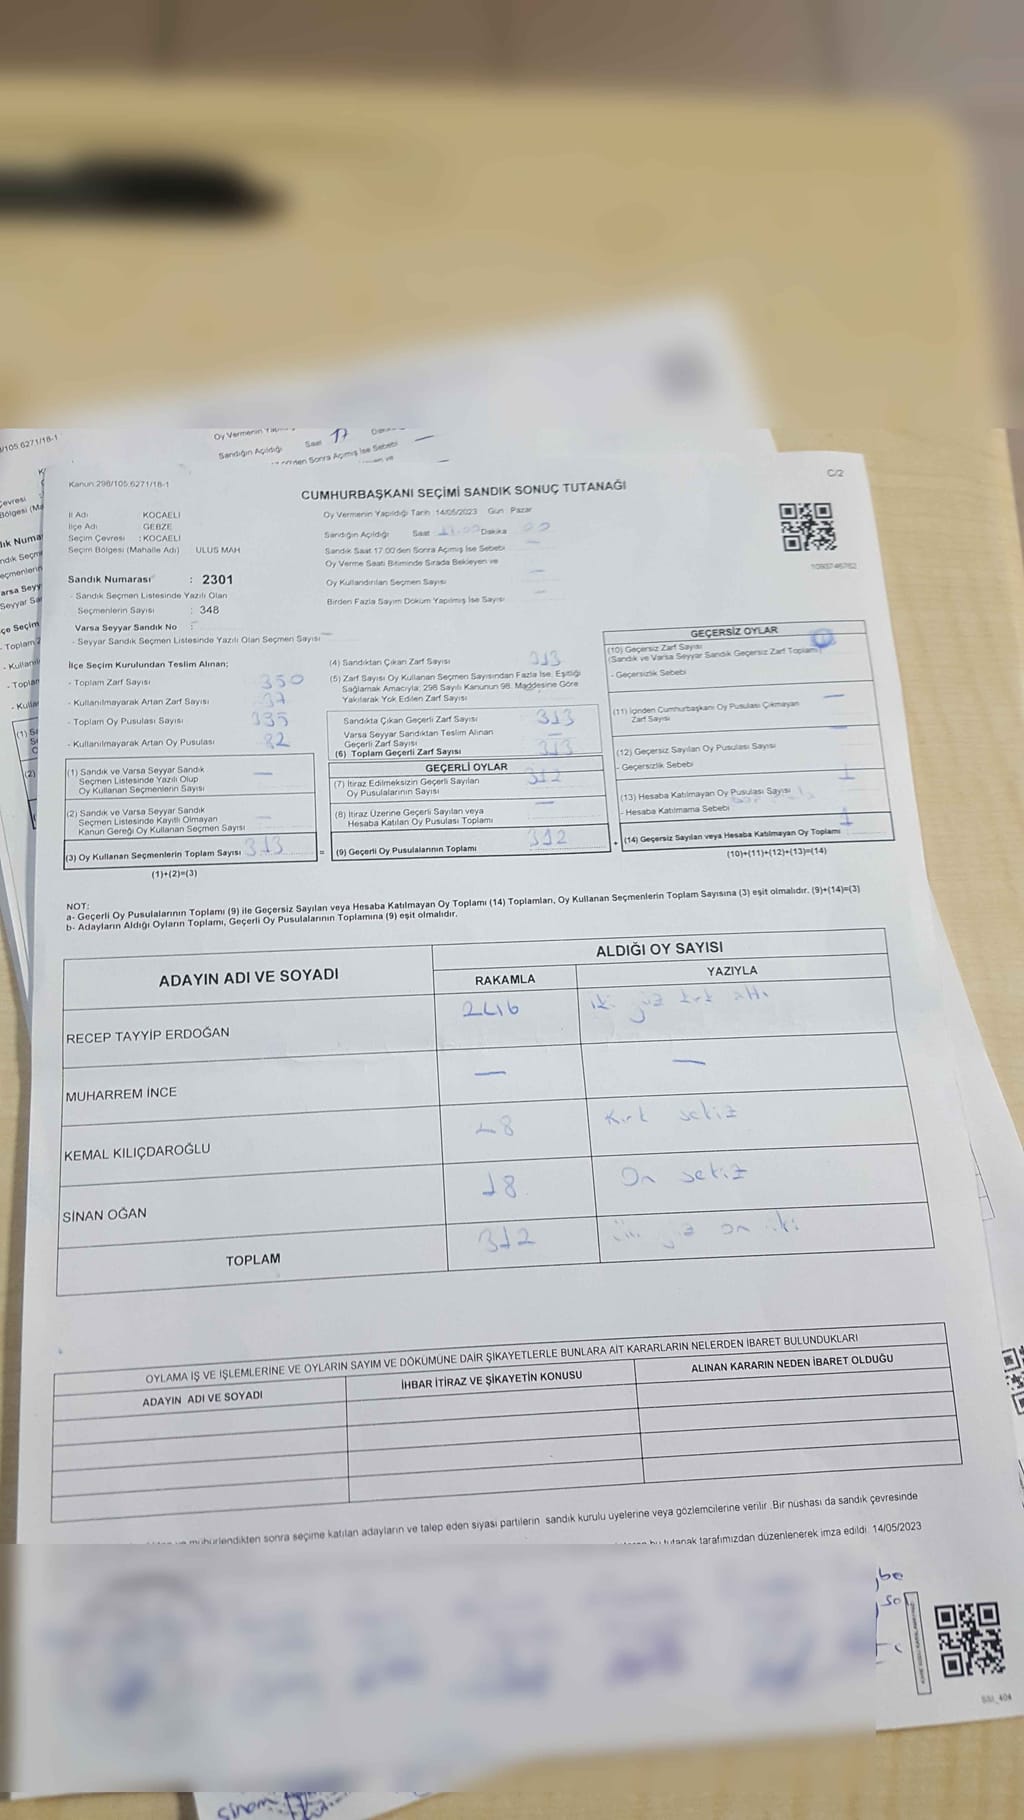 /105.6271/18-1
Oy Vermenin
Sandığın Açıldığı Saat 17
Sonra Açımış İse Sebebi
C/2
Kanun:298/105.6271/18-1
CUMHURBAŞKANI SEÇİMİ SANDIK SONUÇ TUTANAĞI
İl Adı KOCAELİ
İlçe Adı GEBZE
Seçim Çevresi : KOCAELİ
Seçim Bölgesi (Mahalle Adı) ULUS MAH
Oy Vermenin Yapıldığı Tarih :14/05/2023 Gün: Pazar
Sandığın Açıldığı Saat 17:00 Dakika 00
Sandık Saat 17.00'den Sonra Açımış İse Sebebi —
Oy Verme Saati Bitiminde Sırada Bekleyen ve
Oy Kullandırılan Seçmen Sayısı —
Birden Fazla Sayım Döküm Yapılmış İse Sayısı —
1093746762
Sandık Numarası : 2301
- Sandık Seçmen Listesinde Yazılı Olan
Seçmenlerin Sayısı : 348
Varsa Seyyar Sandık No :
- Seyyar Sandık Seçmen Listesinde Yazılı Olan Seçmen Sayısı —
İlçe Seçim Kurulundan Teslim Alınan;
- Toplam Zarf Sayısı 350
- Kullanılmayarak Artan Zarf Sayısı 37
- Toplam Oy Pusulası Sayısı 395
- Kullanılmayarak Artan Oy Pusulası 82
(1) Sandık ve Varsa Seyyar Sandık
Seçmen Listesinde Yazılı Olup
Oy Kullanan Seçmenlerin Sayısı —
(2) Sandık ve Varsa Seyyar Sandık
Seçmen Listesinde Kayıtlı Olmayan
Kanun Gereği Oy Kullanan Seçmen Sayısı —
(3) Oy Kullanan Seçmenlerin Toplam Sayısı 313
(1)+(2)=(3)
(4) Sandıktan Çıkan Zarf Sayısı 313
(5) Zarf Sayısı Oy Kullanan Seçmen Sayısından Fazla İse, Eşitliği
Sağlamak Amacıyla; 298 Sayılı Kanunun 98. Maddesine Göre
Yakılarak Yok Edilen Zarf Sayısı
Sandıkta Çıkan Geçerli Zarf Sayısı 313
Varsa Seyyar Sandıktan Teslim Alınan
Geçerli Zarf Sayısı —
(6) Toplam Geçerli Zarf Sayısı 313
GEÇERLİ OYLAR
(7) İtiraz Edilmeksizin Geçerli Sayılan
Oy Pusulalarının Sayısı 312
(8) İtiraz Üzerine Geçerli Sayılan veya
Hesaba Katılan Oy Pusulası Toplamı —
= (9) Geçerli Oy Pusulalarının Toplamı 312
GEÇERSİZ OYLAR
(10) Geçersiz Zarf Sayısı
(Sandık ve Varsa Seyyar Sandık Geçersiz Zarf Toplamı)
- Geçersizlik Sebebi
(11) İçinden Cumhurbaşkanı Oy Pusulası Çıkmayan
Zarf Sayısı —
(12) Geçersiz Sayılan Oy Pusulası Sayısı —
- Geçersizlik Sebebi
(13) Hesaba Katılmayan Oy Pusulası Sayısı 1
- Hesaba Katılmama Sebebi
+ (14) Geçersiz Sayılan veya Hesaba Katılmayan Oy Toplamı 1
(10)+(11)+(12)+(13)=(14)
NOT:
a- Geçerli Oy Pusulalarının Toplamı (9) ile Geçersiz Sayılan veya Hesaba Katılmayan Oy Toplamı (14) Toplamları, Oy Kullanan Seçmenlerin Toplam Sayısına (3) eşit olmalıdır. (9)+(14)=(3)
b- Adayların Aldığı Oyların Toplamı, Geçerli Oy Pusulalarının Toplamına (9) eşit olmalıdır.
ADAYIN ADI VE SOYADI
ALDIĞI OY SAYISI
RAKAMLA YAZIYLA
RECEP TAYYİP ERDOĞAN 246 iki yüz kırk altı
MUHARREM İNCE — —
KEMAL KILIÇDAROĞLU 48 Kırk sekiz
SİNAN OĞAN 18 On sekiz
TOPLAM 312 üç yüz on iki
OYLAMA İŞ VE İŞLEMLERİNE VE OYLARIN SAYIM VE DÖKÜMÜNE DAİR ŞİKAYETLERLE BUNLARA AİT KARARLARIN NELERDEN İBARET BULUNDUKLARI
ADAYIN ADI VE SOYADI İHBAR İTİRAZ VE ŞİKAYETİN KONUSU ALINAN KARARIN NEDEN İBARET OLDUĞU
mühürlendikten sonra seçime katılan adayların ve talep eden siyasi partilerin sandık kurulu üyelerine veya gözlemcilerine verilir .Bir nüshası da sandık çevresinde
bu tutanak tarafımızdan düzenlenerek imza edildi. 14/05/2023
SSI_404